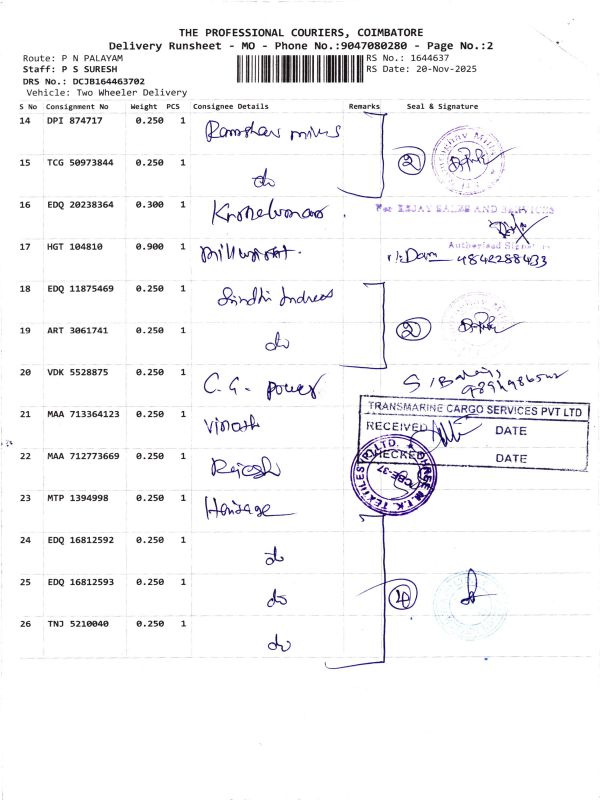 THE PROFESSIONAL COURIERS, COIMBATORE
Delivery Runsheet - MO - Phone No.:9047080280 - Page No.:2
Route: P N PALAYAM RS No.: 1644637
Staff: P S SURESH RS Date: 20-Nov-2025
DRS No.: DCJB164463702
Vehicle: Two Wheeler Delivery
S No Consignment No Weight PCS Consignee Details Remarks Seal & Signature
14 DPI 874717 0.250 1
2
15 TCG 50973844 0.250 1 do
16 EDQ 20238364 0.300 1 For SALES AND SERVICES
Authorised
17 HGT 104810 0.900 1 9842288433
18 EDQ 11875469 0.250 1 Sindhi
2
19 ART 3061741 0.250 1 do
20 VDK 5528875 0.250 1 C.G. power
21 MAA 713364123 0.250 1
TRANSMARINE CARGO SERVICES PVT LTD
RECEIVED DATE
CHECKED DATE
22 MAA 712773669 0.250 1 Rajesh
CBE-37
23 MTP 1394998 0.250 1
24 EDQ 16812592 0.250 1 do
25 EDQ 16812593 0.250 1 do 4
26 TNJ 5210040 0.250 1 do